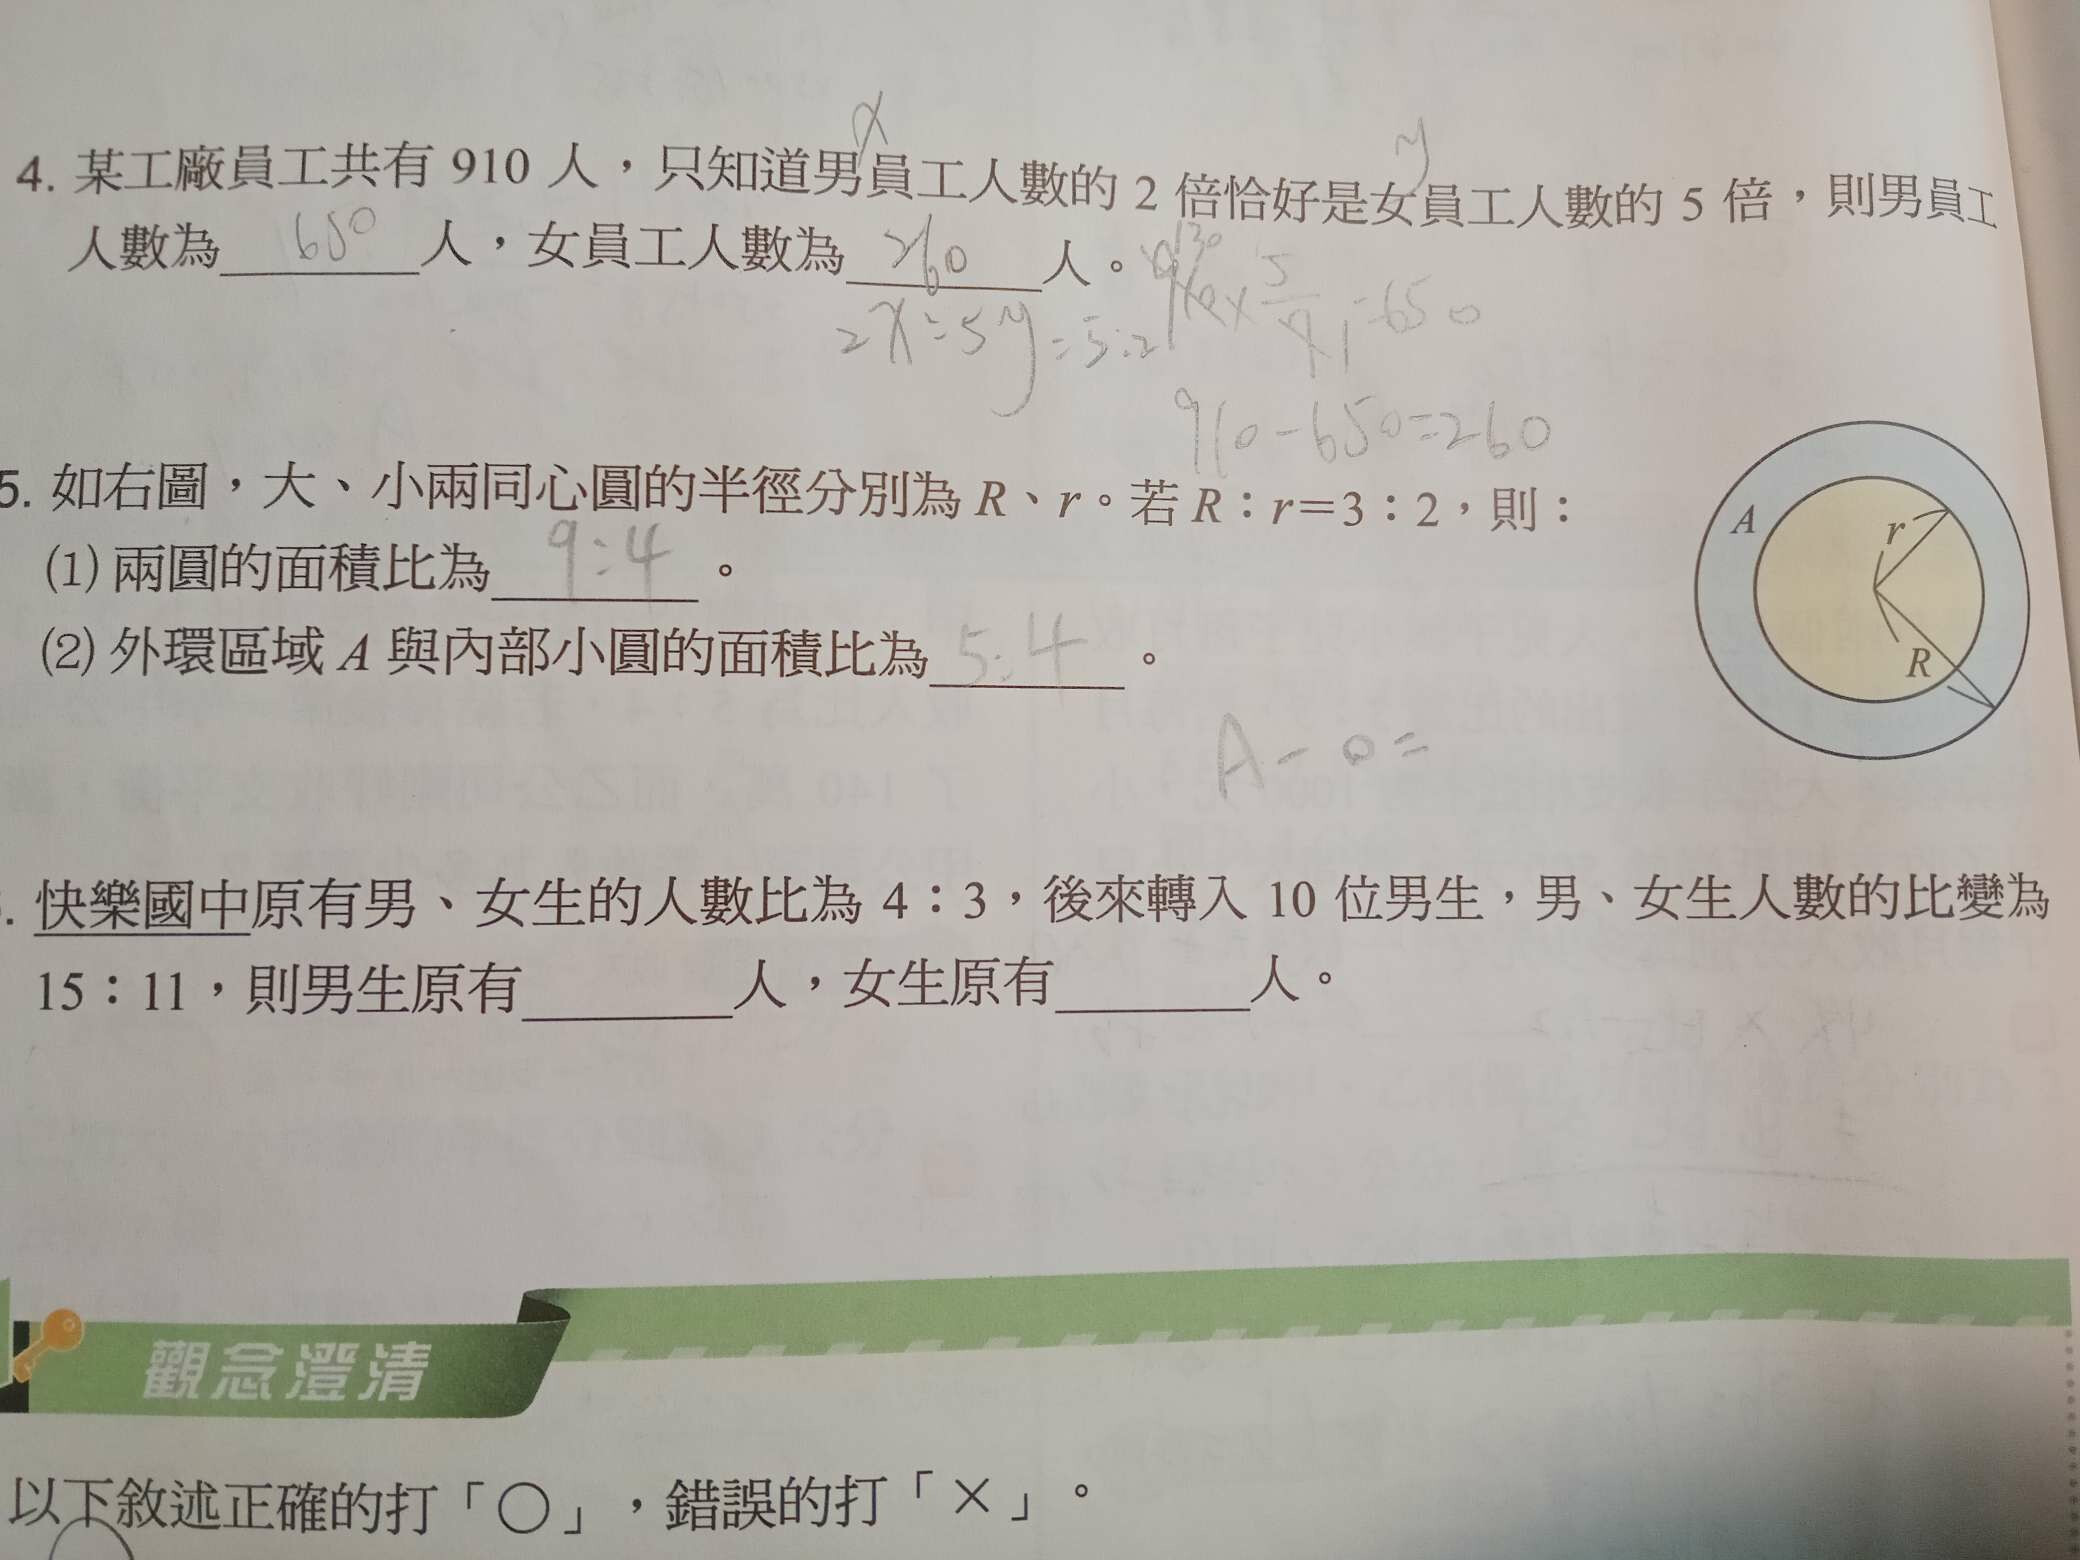 x
y
4. 某工廠員工共有 910 人，只知道男員工人數的 2 倍恰好是女員工人數的 5 倍，則男員工
人數為 650 人，女員工人數為 260 人。
2x=5y=5:2
130
×5/7 1=650
910-650=260
5. 如右圖，大、小兩同心圓的半徑分別為 R、r。若 R：r＝3：2，則：
(1) 兩圓的面積比為 9:4 。
(2) 外環區域 A 與內部小圓的面積比為 5:4 。
A
r
R
A-o=
. 快樂國中原有男、女生的人數比為 4：3，後來轉入 10 位男生，男、女生人數的比變為
15：11，則男生原有 人，女生原有 人。
觀念澄清
以下敘述正確的打「○」，錯誤的打「×」。